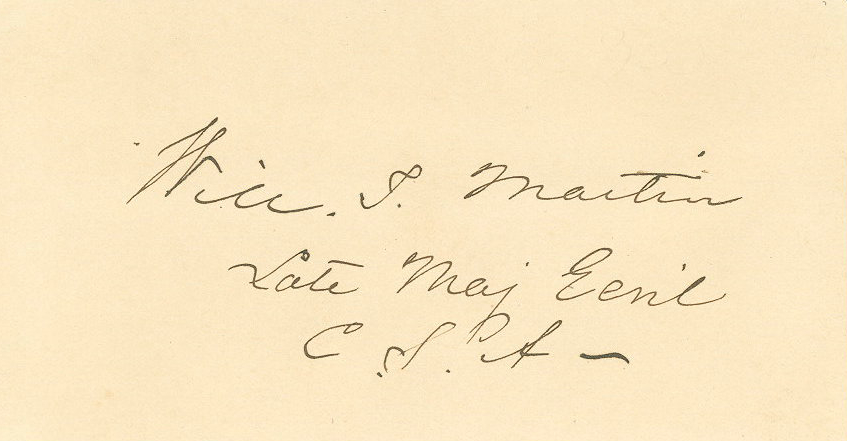 Will. T. Martin
Late Maj Genl
C. S. A -